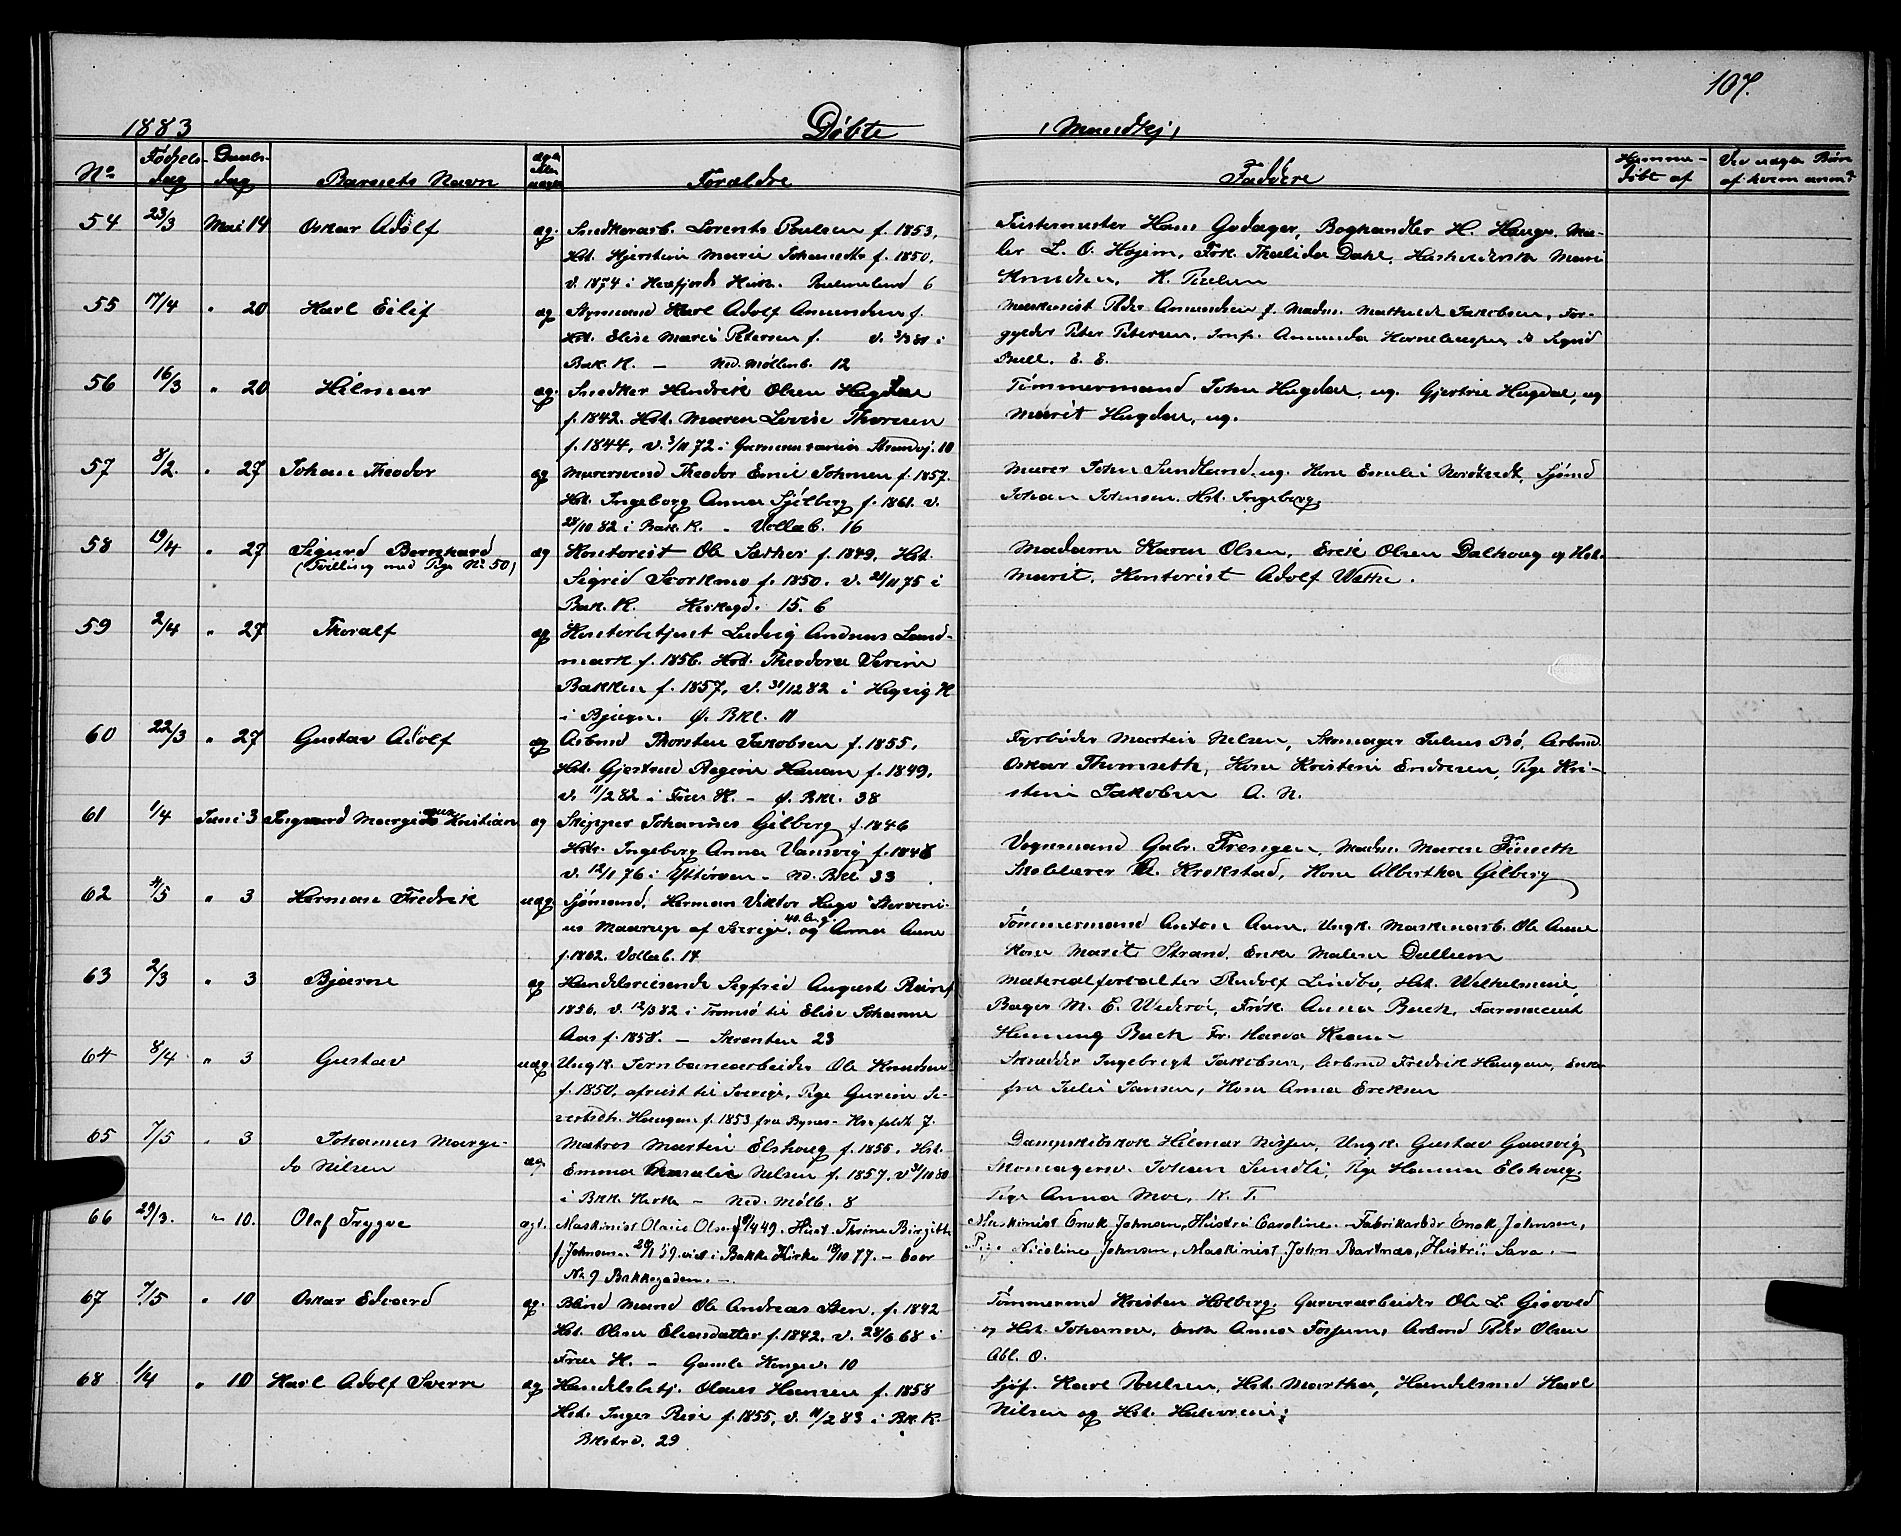 107.
1883 Døbte (Mandkj)
No Fødsels-dag Daabs-dag Barnets Navn ægte eller uægte Forældre Faddere Hjemme-døbt af Ved uægte Børn af hvem anm
54 23/3 Mai 14 Oskar Adolf æg. Snedkerarb. Lorents Poulsen f. 1853,
Hst. Marie f. 1850,
v. 1874 i 6
Hans Godager, Boghandler H. Hauge, Ma-
ler L. O. Hojem, Frk. Thalida Dahl,
Knudsen,
55 17/4 " 20 Karl Eilif æg Styrmand Karl Adolf Amundsen f.
Hst. Elise Marie Petersen f. v. i
Bak. K. — Ned. Møllenb. 12
Maskinist Peder Amundsen Mathilde Jakobsen, For-
gylder Peter Petersen, Jomf. Amanda Sigrid
Bull. E. E.
56 16/3 " 20 Hilmar æg. Snedker Hendrik Olsen Hugdal
f. 1842. Hst. Maren Lovise Thoresen
f. 1844, v. 3/11 72 i Strandvj. 10
Tømmermand John Hugdal, ug. Gjertrie Hugdal, ug
Marit Hugdal, ug.
57 8/2 " 27 Johan Theodor æg Murersvend Theodor Emil Johnsen f. 1857.
Hst. Ingeborg Anna Sjølberg f. 1861. v.
28/10 82 i Bak. K. - Vollab. 16
Murer John Sundland, ug. Kone Emilie Sjømd
Johan Johnsen, Hst. Ingeborg
58 19/4 " 27 Sigurd Bernhard æg Kontorist Ole Sæther f. 1849, Hst.
(Tvilling med Pige No 50)
Sigrid Storkmo f. 1850. v. 28/11 75 i
Bak. K. Kirkegd. 15. 6
Madame Karen Olsen, Erik Olsen Dalhoug og Hst.
Marit, Kontorist Adolf
59 2/4 " 27 Thoralf æg Kontorbetjent Ludvig Andreas Land-
mark f. 1856. Hst. Theodora Serine
Bakken f. 1857, v. 31/12 82 i K
i Bjugn. Ø. Bkl. 11
60 22/3 " 27 Gustav Adolf æg Arbmd Thorsten Jakobsen f. 1855,
Hst. Gjertrud Regine Hanan f. 1849,
v. 11/2 82 i Frue K. - Ø. Bkl. 38
Fyrbøder Martin Nilsen, Skomager Julius Bø, Arbmd.
Oskar Thomseth, Kone Kristine Endresen, Pige Kri-
stine Jakobsen A. N.
61 1/4 Juni 3 Ingvard Kristian æg Skipper Johannes Gilberg f. 1846
Hst. Ingeborg Anna Vansvig f. 1848
v. 12/11 76 i Ytterøen - Nd. Bkl 33
Vognmand Gabr. Fresnger, Madm. Maren
Skolelærer O. Krokstad, Kone Albertha Gilberg
62 4/5 " 3 Herman Fredrik uæg Sjømand, Herman Viktor Hugo
us Maarup af Sverige, 40 Aar og Anna Aune
f. 1862. Vollab. 14
Tømmermand Anton Aune, Ungk. Maskinarb. Ole Aune
Kone Marit Strand, Enke Malene Dullum
63 2/3 " 3 Bjarne æg Handelsreisende Sigfrid August Rein f.
1856, v. 12/3 82 i Tromsø til Elise Johanne
Aas f. 1858. — Skrænten 23
Materialforvalter Rudolf Lindbo, Hst. Wilhelmine,
Bager M. E. Widerøe, Frøk. Anna Buck, Farmaceut
Henning Buck Fr.
64 8/4 " 3 Gustav uæg Ungk. Jernbanearbeider Ole Knudsen
f. 1850, afreist til Sverige, Pige Gurine Si-
vertsdt. Haugan f. 1853 fra Bynes - 7.
Skrædder Ingebrigt Jakobsen, Arbmd Fredrik Haugan, Enke-
fru Julie Jansen, Kone Anna Eriksen
65 7/5 " 3 Johannes Marge- Matros Martin Elshoug f. 1856. Hst.
do Nilsen æg. Emma Amalie Nilsen f. 1857, v. 31/10 80
i Bkk. Kirke — Ned. Mølb. 8
Dampskibskok Hilmar Ungk. Gustav Gaasvig
Skomagersv. Johan Sundli, Pige Hanna Elshoug,
Pige Anna Moe, K. T.
66 29/3. " 10. Olaf Trygve ægt. Maskinist Olaus Olsen f. 49. Hust. Thrine Birgitte
f. Johnsen 28/1 59. viet i Bakke Kirke 18/10 77. — Boer
No 9 Bakkegaden. —
Maskinist Enok Johnsen, Hustru Caroline. Fabrikarbdr Enok Johnsen,
Pige Nicoline Johnsen, Maskinist John Bartnæs, Hustru Sara. —
67 7/5 " 10 Oskar Edvard æg. Blind Mand Ole Andreas Sten, f. 1842
Hst. Oline Eliasdatter f. 1842. v. 28/6 68 i
Frue K. — Gamle Kongev. 10
Tømmermd Kristen Holberg, Garverarbeider Ole L. Gisvold
og Hst. Johanna, Enke Anna Forsum, Arbmd Peder Olsen
Abl. O.
68 1/4 " 10 Karl Adolf Sverre æg Handelsbetj. Olaus Hansen f. 1858
Hst. Inger Risè f. 1855, v. 11/2 83 i Bk. K.
Bkstrd. 29
Karl Poulsen, Hst. Martha, Handelsmd Karl
Nilsen og Hst.